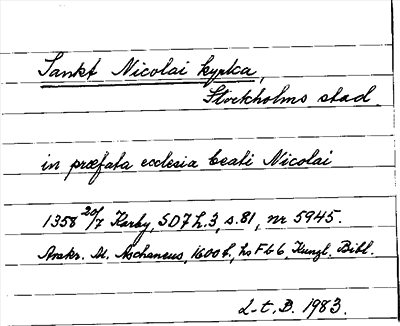 Sankt Nicolai kyrka,
Stockholms stad.
in præfata ecclesia beati Nicolai
1358 20/7 Karby, SD7 h.3, s.81, nr 5945.
Avskr. M. Aschaneus, 1600 t., hs F b 6, Kungl. Bibl.
L.t.D. 1983.